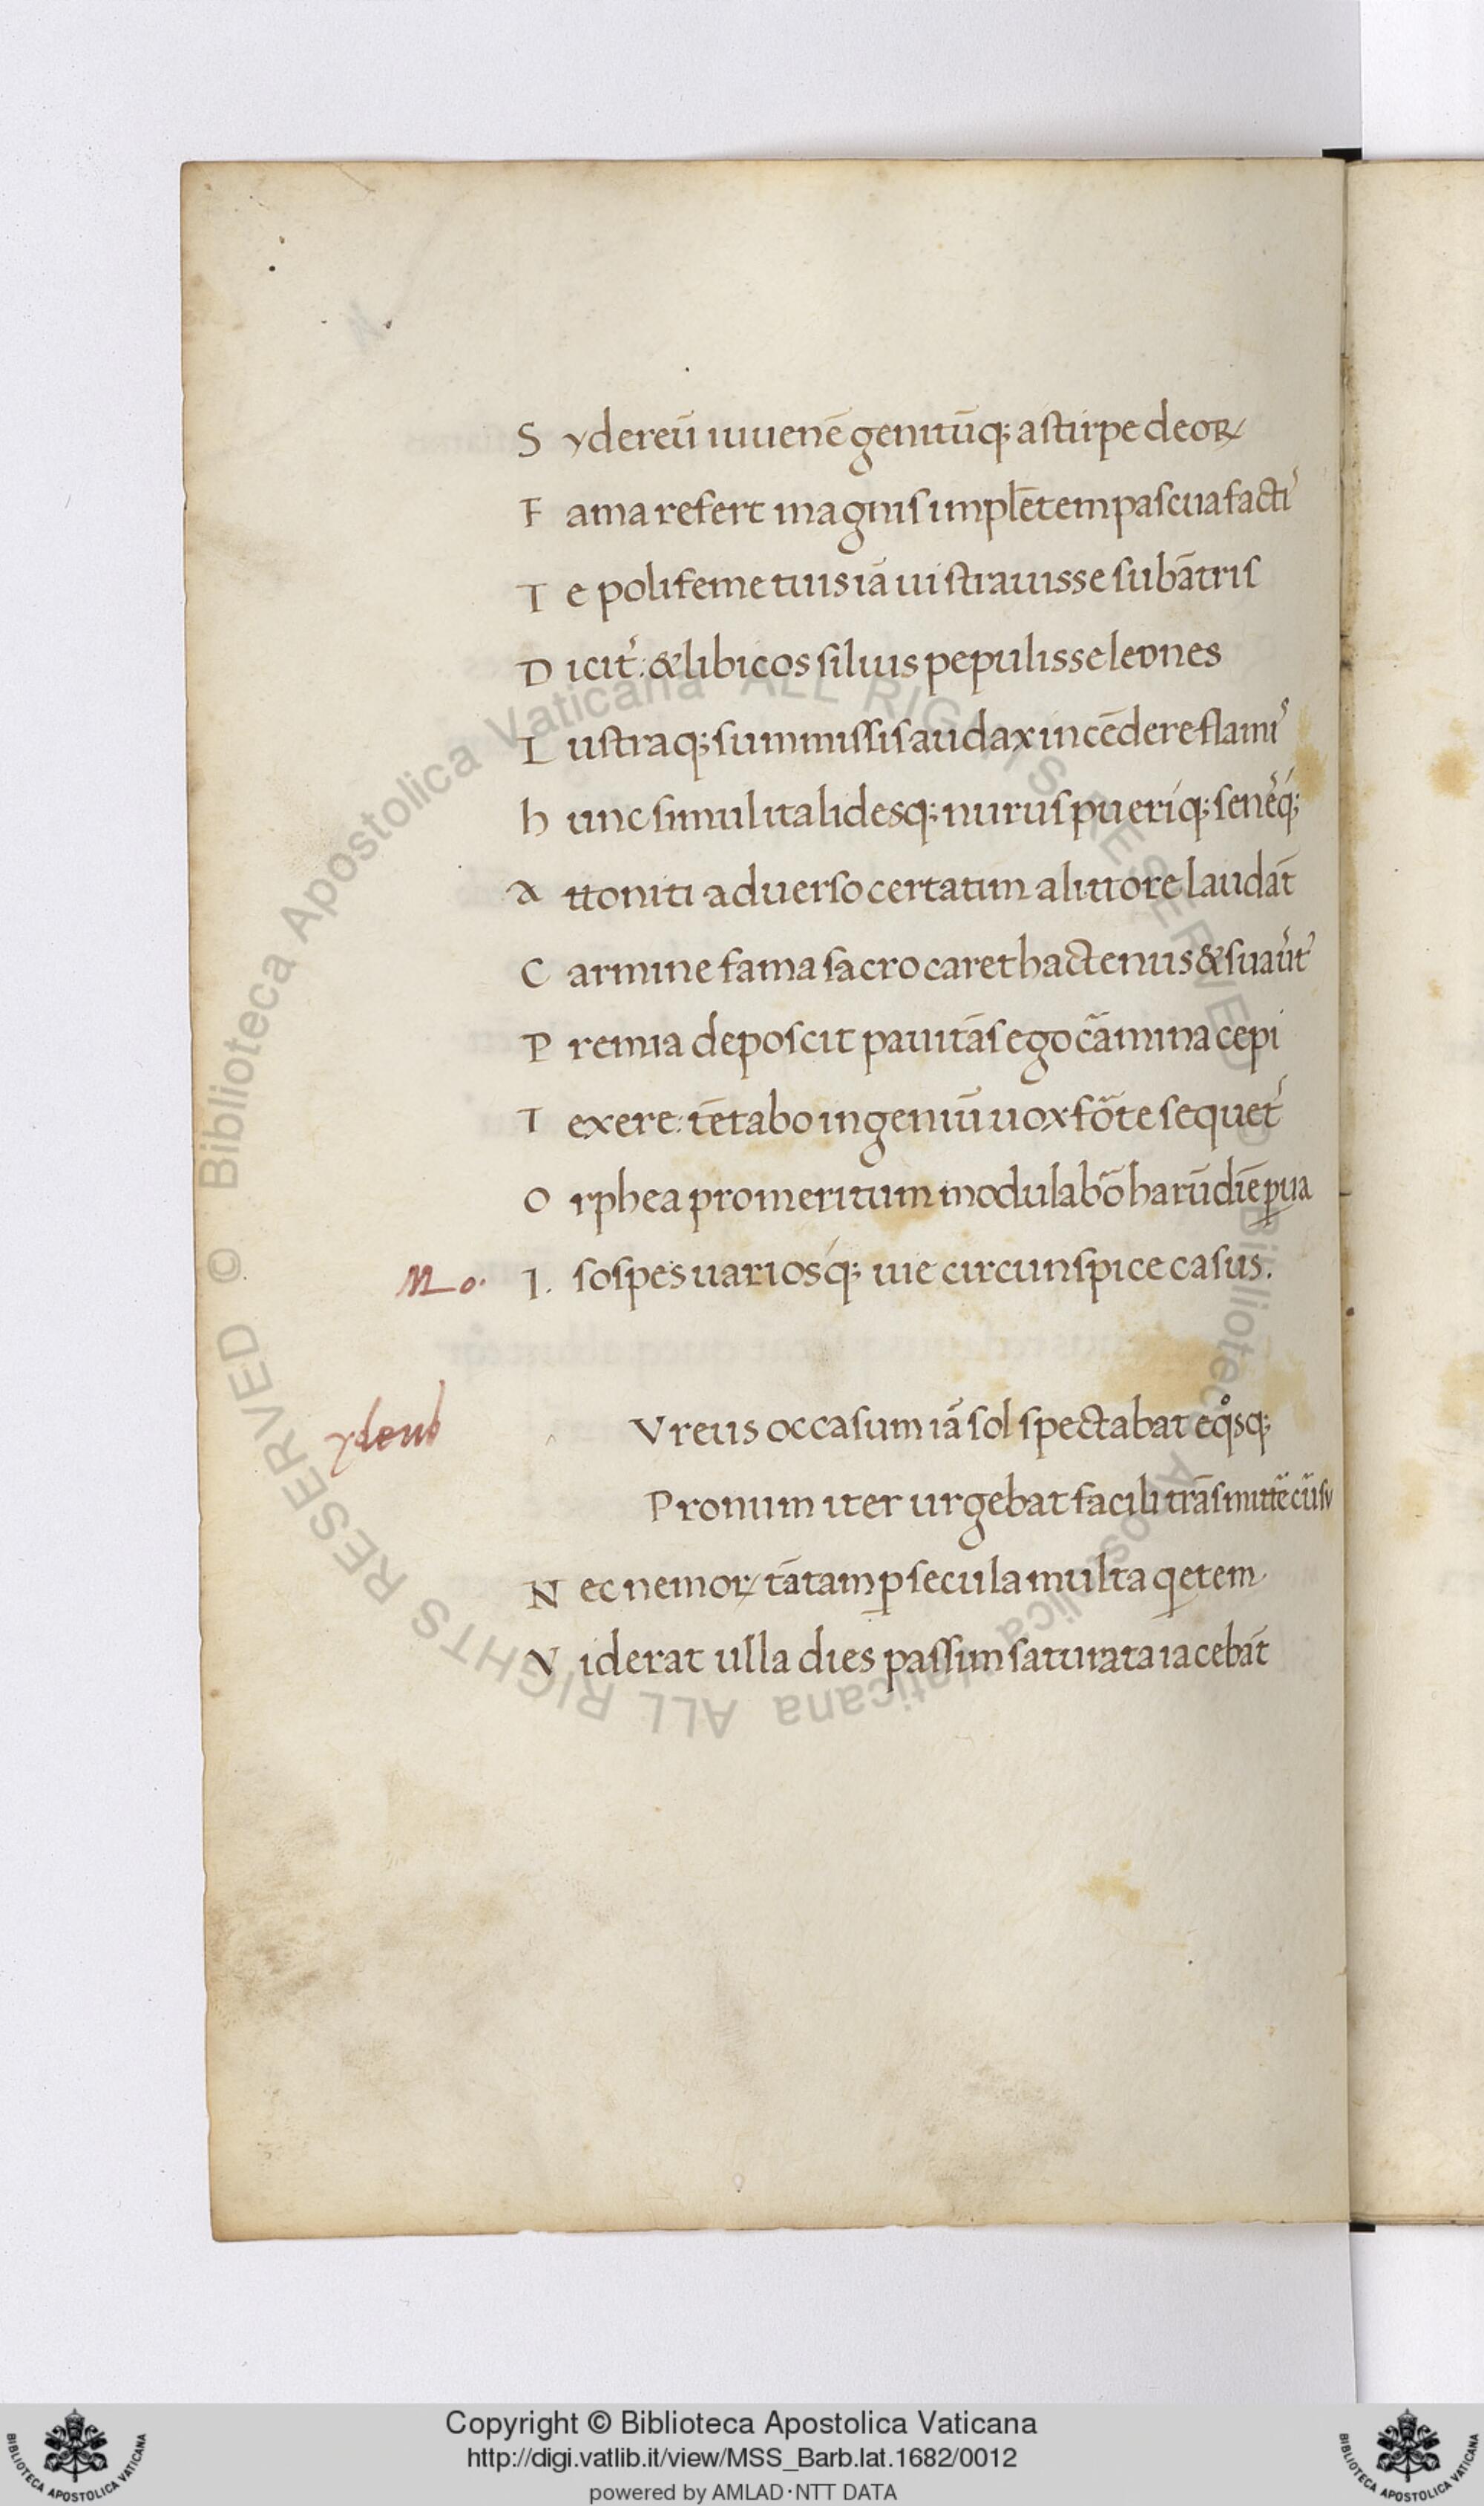 S ydereū iuuenē genitūq; a stirpe deoꝝ
F ama refert magnis implētem pascua facti᾽
T e polifeme tuis iā ui strauisse sub ātris
D icit᾽: & libicos siluis pepulisse leones
L ustraq; summissis audax incēdere flami᾽
h unc simul italidesq; nurus pueriq; seneq;
A ttoniti aduerso certatim a littore laudāt
C armine fama sacro caret hactenus & suau᾽t᾽
P remia deposcit pauitās ego cāmina cepi
T exere: tētabo ingeniū uox fōte sequet᾽
O rphea promeritum modulabō harūdiē ꝑua
Mo. I. sospes uariosq; uie circunspice casus.
ydeus Vreus occasum iā sol spectabat eqͦsq;
Pronum iter urgebat facili trāsmittē cūsu
N ec nemoꝝ tātam ꝑ secula multa qetem
V iderat ulla dies passim saturata iacebāt
© Biblioteca Apostolica Vaticana ALL RIGHTS RESERVED © Biblioteca Apostolica Vaticana ALL RIGHTS RESERVED
Copyright © Biblioteca Apostolica Vaticana
http://digi.vatlib.it/view/MSS_Barb.lat.1682/0012
powered by AMLAD·NTT DATA
BIBLIOTECA APOSTOLICA VATICANA
BIBLIOTECA APOSTOLICA VATICANA